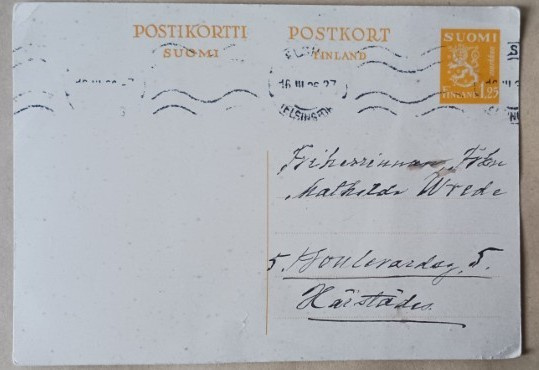 POSTIKORTTI POSTKORT
SUOMI FINLAND
SUOMI
FINLAND 1,25
16.III.
HELSINGFORS
Friherrinnan, Frkn
Mathilda Wrede
5. Boulevardsg. 5.
Härstädes.